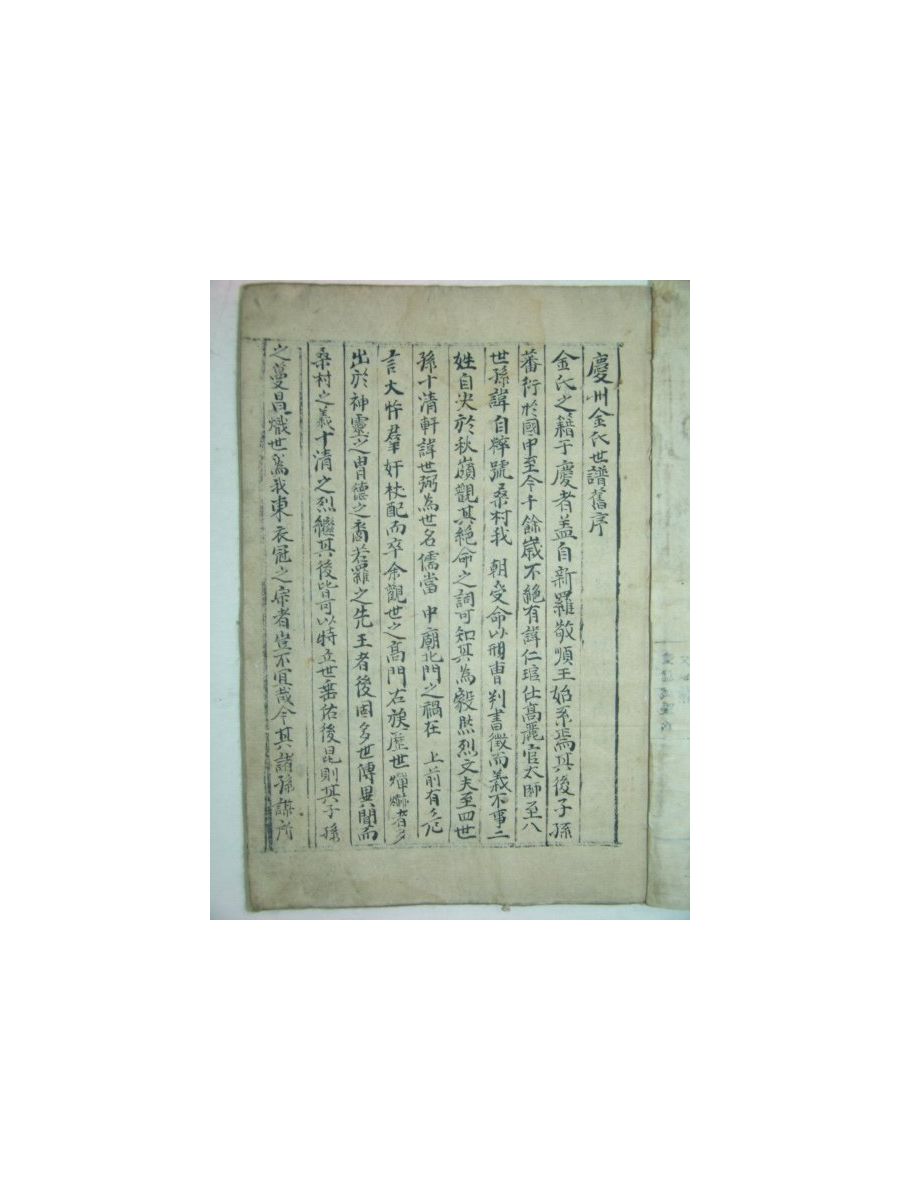 慶州金氏世譜舊序
金氏之籍于慶者盖自新羅敬順王始系焉其後子孫
蕃衍於國中至今千餘歲不絶有諱仁琯仕高麗官太師至八
世孫諱自粹號桑村我 朝受命以刑曹判書徵而義不事二
姓自决於秋嶺觀其絶命之詞可知其為毅然烈丈夫至四世
孫十清軒諱世弼為世名儒當 中廟北門之禍在 上前有危
言大忤羣奸杖配而卒余觀世之高門右族歷世爀者多
出於神靈之冑德之裔若羅之先王者後固多世傳異聞而
桑村之義十清之烈繼其後皆可以特立世垂佑後昆則其子孫
之蔓昌熾世為我東衣冠之宗者豈不宜哉今其諸孫謀所